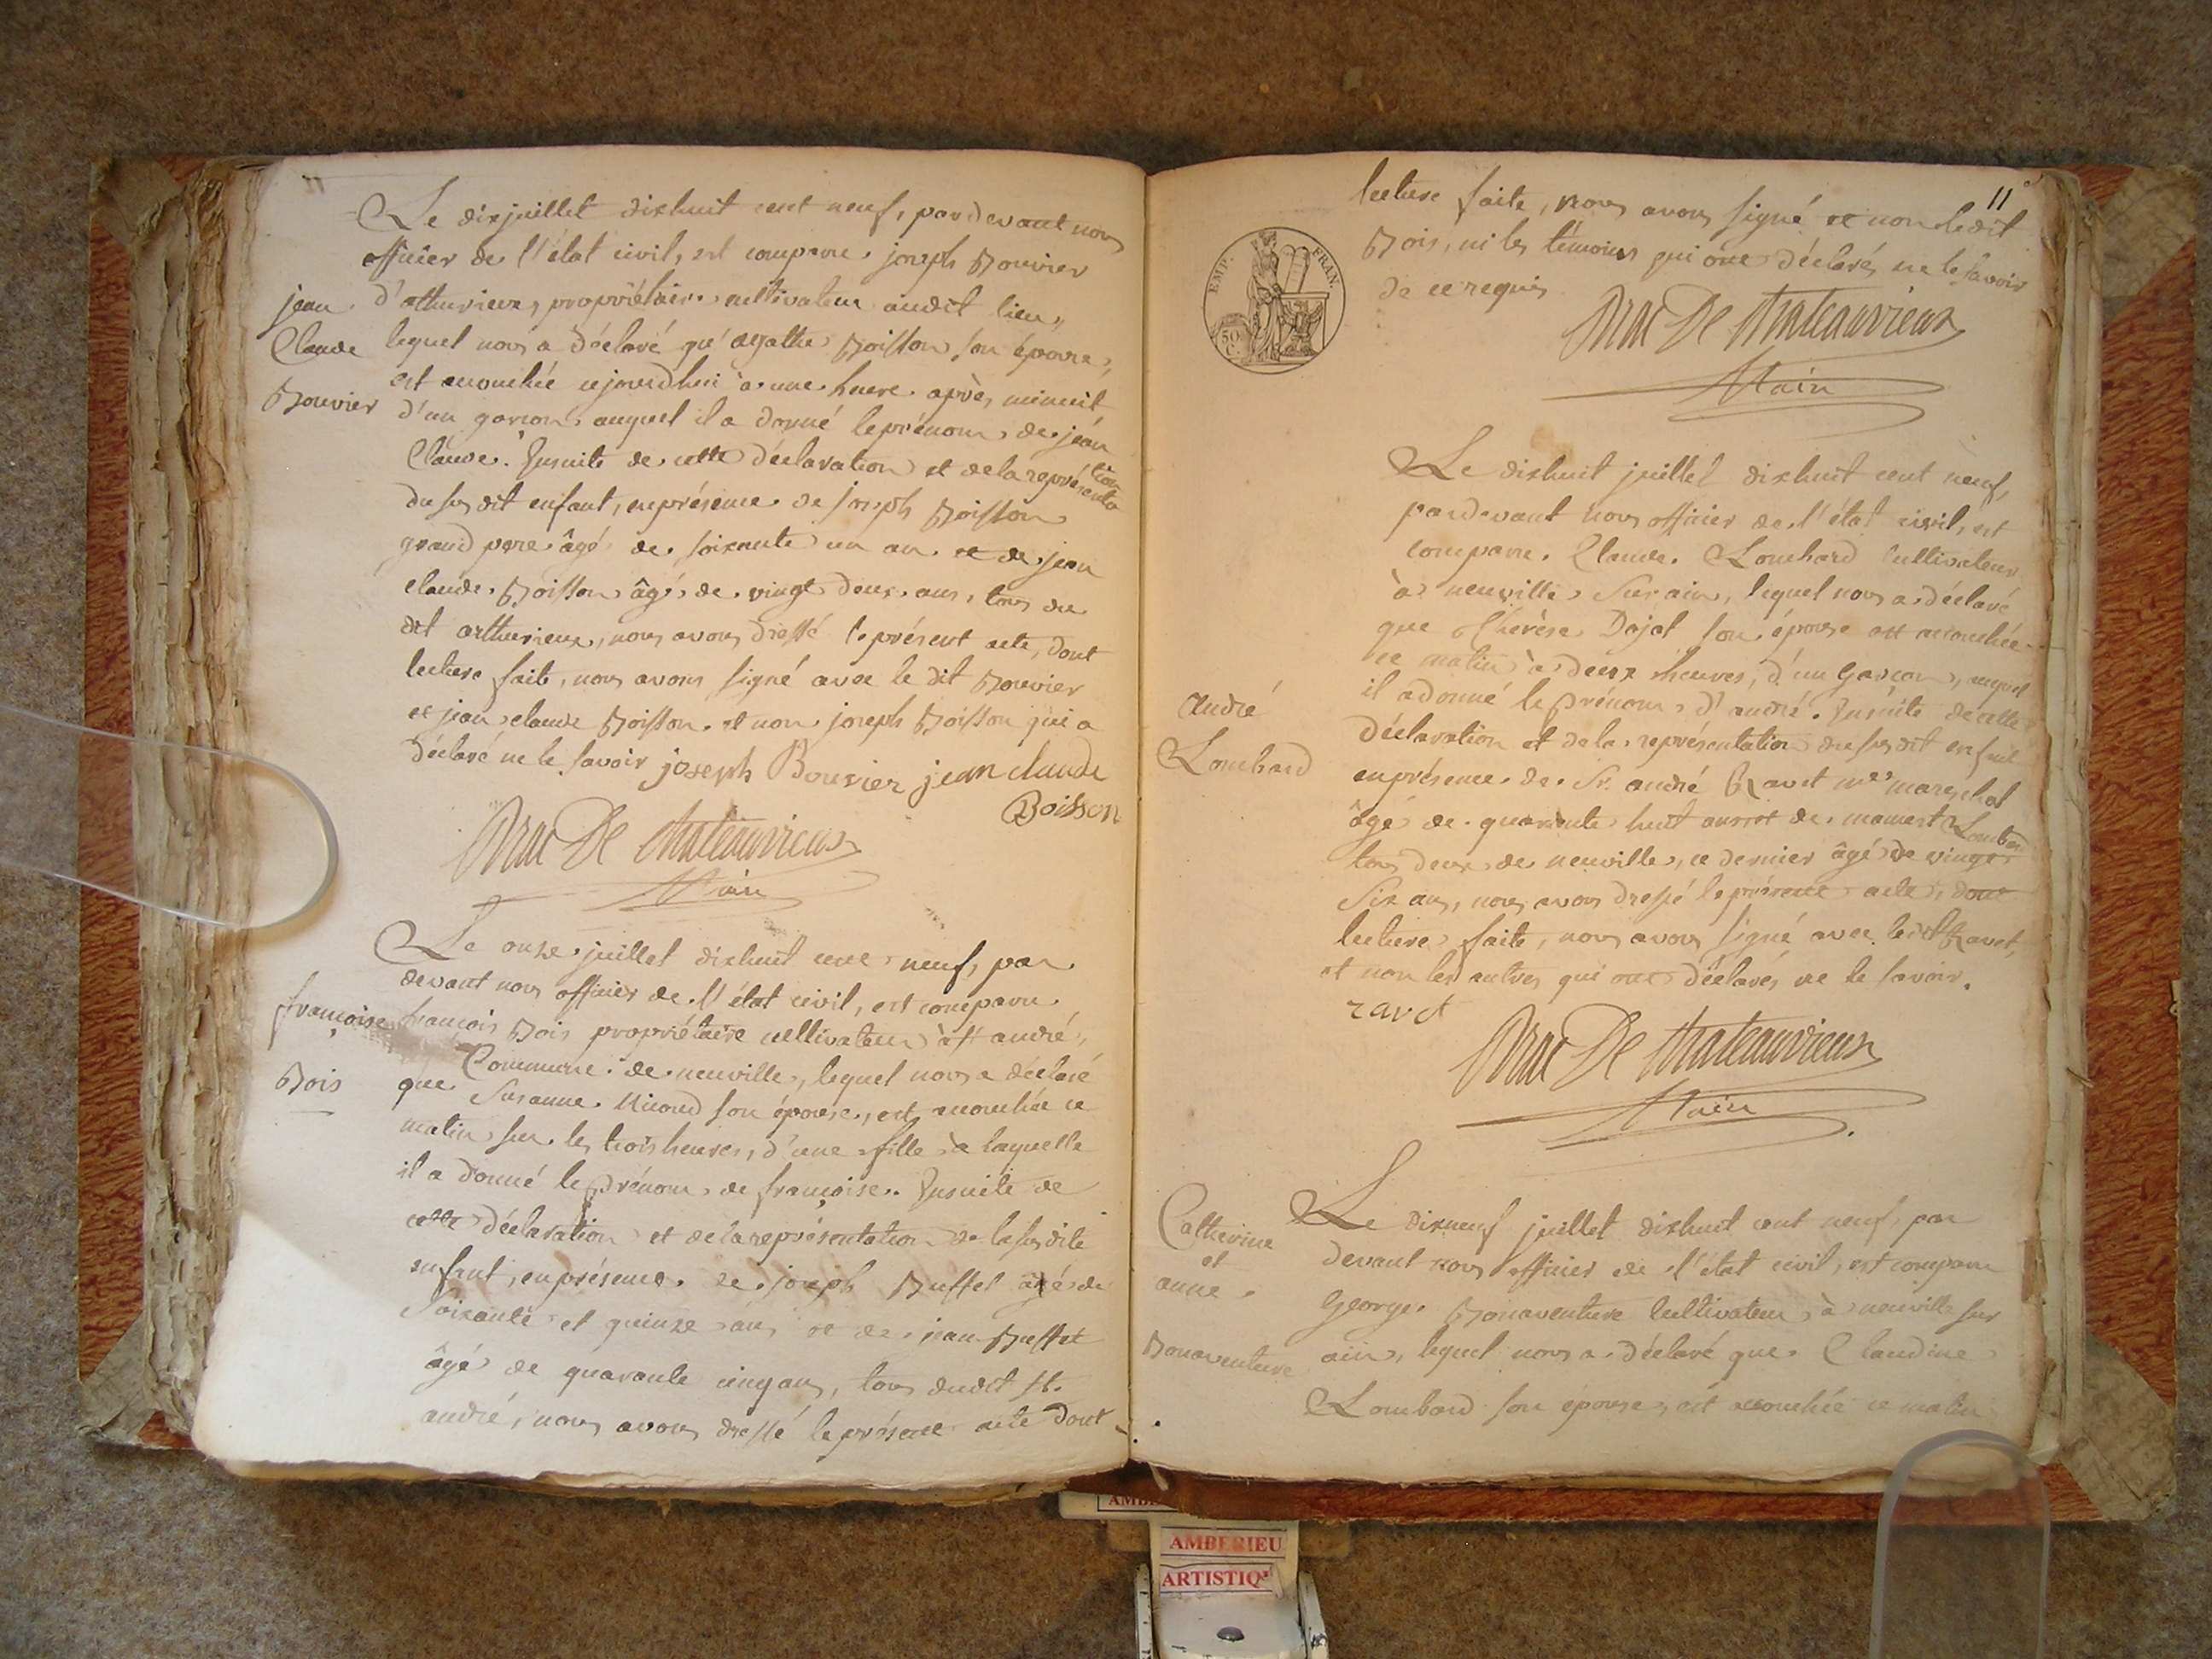 Le dix juillet dixhuit cent neuf, pardevant nous
officier de l'état civil, est comparu joseph Bouvier
d'atthurieux, propriétaire cultivateur audit lieu,
lequel nous a déclaré qu'agathe Boisson son épouse,
est accouchée cejourd'hui à une heure après minuit,
d'un garçon, auquel il a donné le prénom de jéan
Claude. Ensuite de cette déclaration et de la représenta
tion
du susdit enfant, en présence de joseph Boisson
grand pere âgé de soixante un an et de jean
claude Boisson âgé de vingt deux ans, tous du
dit artthurieux, nous avons dressé le présent acte, dont
lecture faite, nous avons signé avec le dit Bouvier
et jean claude Boisson et non joseph Boisson qui a
déclaré ne le savoir joseph Bouvier jean claude
Boisson
Brac De Chateauvieux
Main
jean
Claude
Bouvier
Le onze juillet dixhuit cent neuf, par
devant nous officier de l'état civil, est comparu
françois Bois propriétaire cultivateur à st andré,
Commune de neuville, lequel nous a déclaré
que Susanne Nicoud son épouse, est accouchée ce
matin sur les trois heures, d'une fille à laquelle
il a donné le prénom de françoise. Ensuite de
cette déclaration et de la représentation de la susdite
enfant, en présence de joseph Buffet agé de
Soixante et quinze ans et de jean Buffet
âgé de quarante cinq ans, tous dudit st.
andré, nous avons dressé le présent acte dont
françoise
Bois
11
lecture faite, nous avons signé et non le dit
Bois, ni les témoins qui ont déclarés ne le savoir
de ce requis
EMP. FRAN.
50
C.
Brac De Chateauvieux
Main
Le dixhuit juillet dixhuit cent neuf,
pardevant nous officier de l'état civil, est
comparu Claude Lombard Cultivateur
à neuville Sur ain, lequel nous a déclaré
que Thérèse Dajat son épouse est accouchée
ce matin à deux heures, d'un Garçon, auquel
il a donné le prénom d'andré. Ensuite de cette
Déclaration et de la représentation du susdit enfant
en présence de Sr. andré Ravet me mareschal
âgé de quarante huit ans et de mamert Lombard
tous deux de neuville, ce dernier âgé de vingt
Six ans, nous avons dressé le présent acte, dont
lecture faite, nous avons signé avec ledit Ravet,
et non les autres qui ont déclarés ne le savoir.
ravet
Brac De Chateauvieux
Main
andré
Lombard
Le dixneuf juillet dixhuit cent neuf, par
devant nous officier de l'état civil, est comparu
George Bonaventure Cultivateur à neuville sur
ain, lequel nous a déclaré que Claudine
Lombard son épouse, est accouchée ce matin
Catherine
et
anne
Bonaventure
AMBERIEU
ARTISTIQ